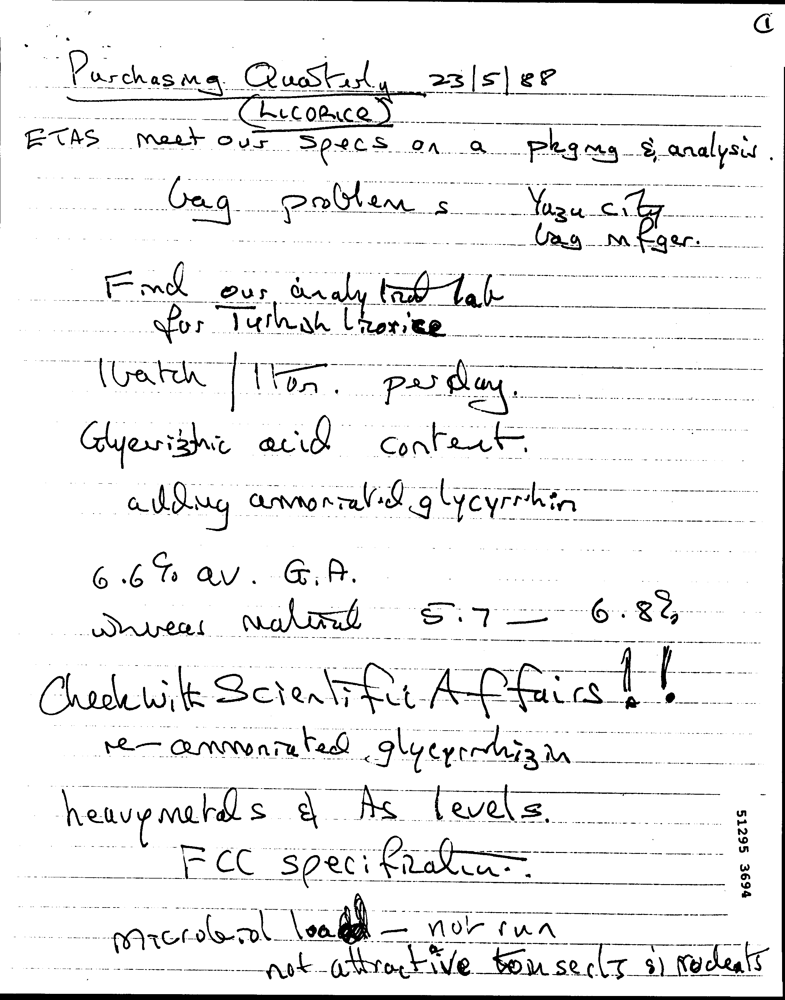 1
Purchasing Quarterly 23/5/88
(LICORICE)
ETAS meet our specs on a pkgmg & analysis.
bag problems Yazu city
bag mfger.
Find our analytical lab
for Turkish licorice
1 batch / 1 ton. per day.
Glycerizthic acid content.
adding ammoniated glycyrrhin
6.6% av. G.A.
whereas natural 5.7 — 6.8%
Check with Scientific Affairs!!
re- ammoniated glycyrrhizin
heavy metals & As levels.
FCC specification.
Microbial load — not run
not attractive to insects & rodents
51295 3694